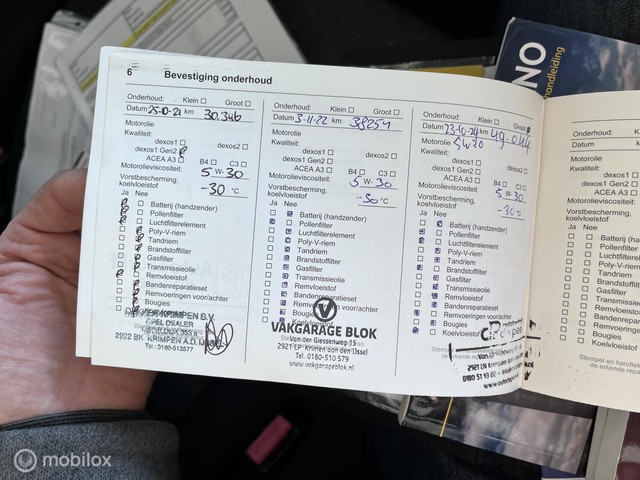 6 Bevestiging onderhoud
Onderhoud: Klein Groot
Datum 25-10-21 km 30.346
Motorolie
Kwaliteit:
dexos1 dexos2
dexos1 Gen2
ACEA A3 B4 C3
Motorolieviscositeit: 5 W-30
Vorstbescherming,
koelvloeistof -30 °C
Ja Nee
Batterij (handzender)
Pollenfilter
Luchtfilterelement
Poly-V-riem
Tandriem
Brandstoffilter
Gasfilter
Transmissieolie
Remvloeistof
Bandenreparatieset
Remvoeringen voor/achter
Bougies
KRIMPEN B.V.
OPEL DEALER
2922 BK KRIMPEN A.D. IJSSEL
Tel.: 0180-513577
Onderhoud: Klein Groot
Datum 3-11-22 km 38254
Motorolie
Kwaliteit:
dexos1 dexos2
dexos1 Gen2
ACEA A3 B4 C3
Motorolieviscositeit: 5 W-30
Vorstbescherming,
koelvloeistof -30 °C
Ja Nee
Batterij (handzender)
Pollenfilter
Luchtfilterelement
Poly-V-riem
Tandriem
Brandstoffilter
Gasfilter
Transmissieolie
Remvloeistof
Bandenreparatieset
Remvoeringen voor/achter
Bougies
VAKGARAGE BLOK
Van der Giessenweg 15
2921 LP Krimpen aan den IJssel
Tel. 0180-510 579
www.vakgarageblok.nl
Onderhoud: Klein Groot
Datum 23-10-24 km 49.044
Motorolie 5w30
Kwaliteit:
dexos1 dexos2
dexos1 Gen2
ACEA A3 B4 C3
Motorolieviscositeit: 5 W-30
Vorstbescherming,
koelvloeistof -30 °C
Ja Nee
Batterij (handzender)
Pollenfilter
Luchtfilterelement
Poly-V-riem
Tandriem
Brandstoffilter
Gasfilter
Transmissieolie
Remvloeistof
Bandenreparatieset
Remvoeringen voor/achter
Bougies
Koelvloeistof
Onderhoud:
Datum
Motorolie
Kwaliteit:
dexos1
dexos1 Gen2
ACEA A3
Motorolieviscositeit:
Vorstbescherming,
koelvloeistof
Ja Nee
Batterij (handzender)
Pollenfilter
Luchtfilterelement
Poly-V-riem
Tandriem
Brandstoffilter
Gasfilter
Transmissieolie
Remvloeistof
Bandenreparatieset
Remvoeringen
Bougies
Koelvloeistof
Stempel en handtek
de erkende repa
NO
handleiding
mobilox